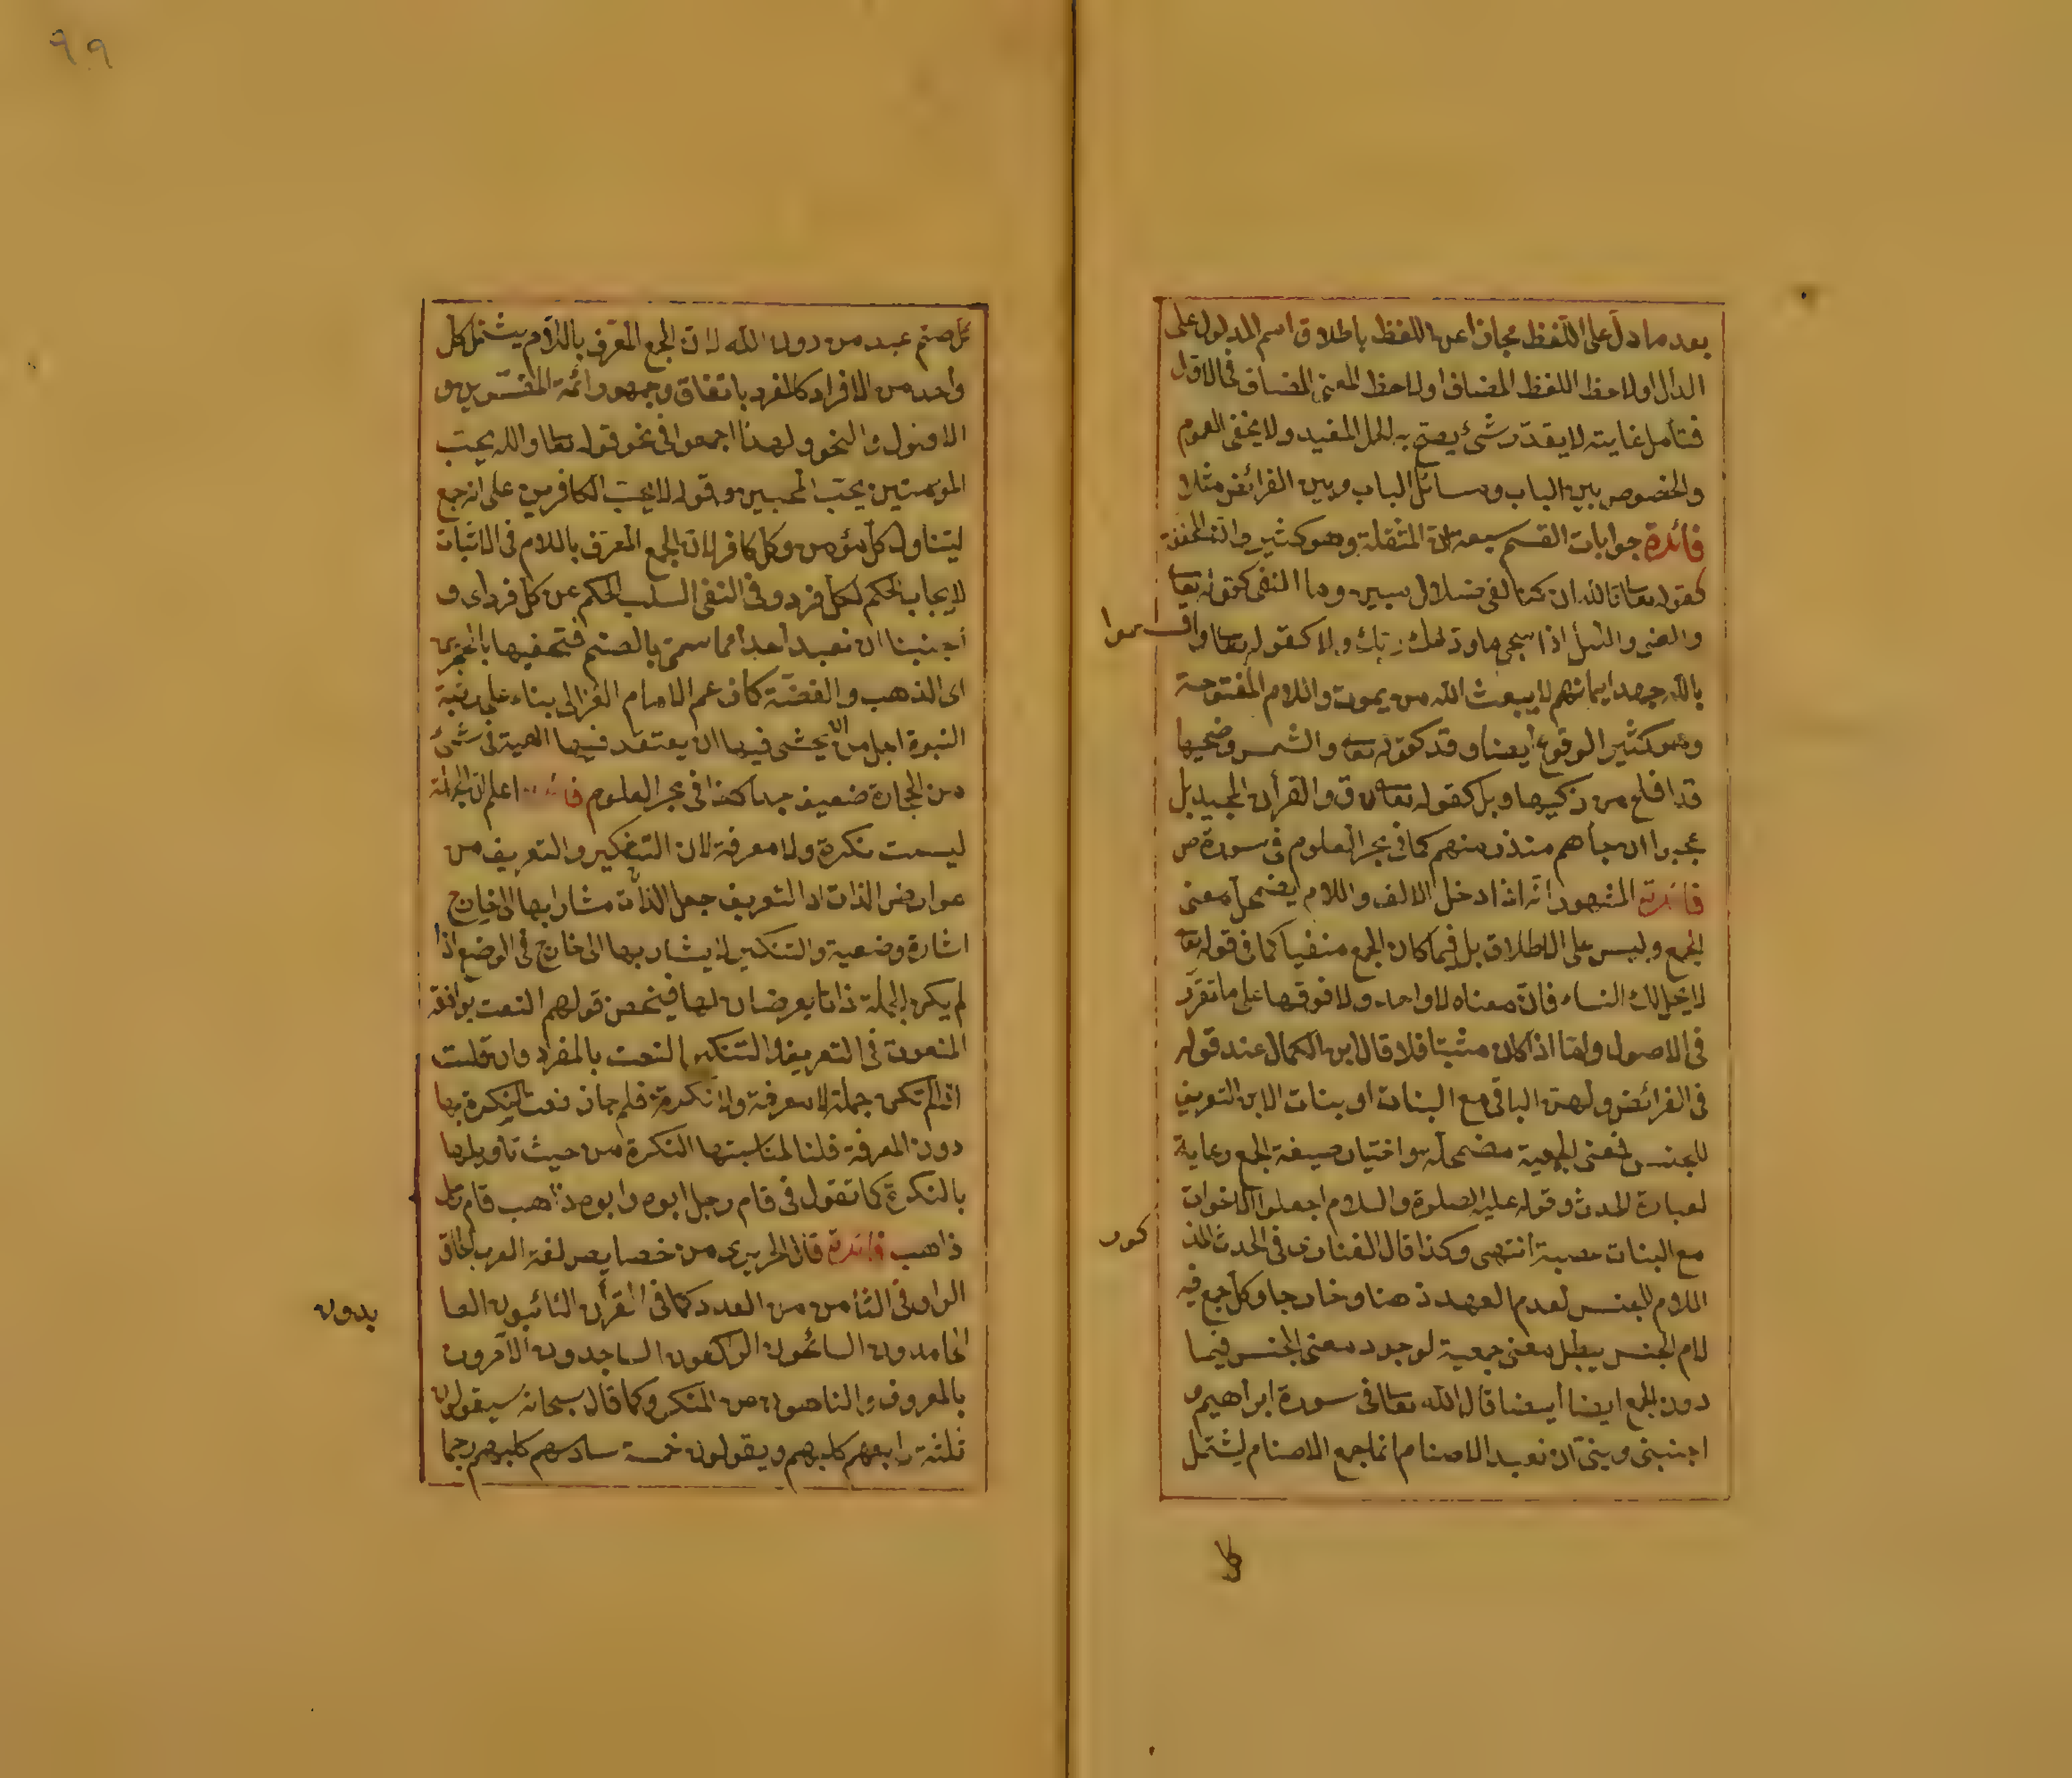 بعد ما دل على اللفظ مجازا عن اللفظ باطلاق اسم المدلول على
الدال اولاحظ اللفظ المضاف اولاحظ المعنى المضاف في الاول
فتأمل غايته لا يقدر شئ يصح به الحمل المفيد ولا يخفى العموم
والخصوص بين الباب ومسائل الباب وبين الفرائض مثلا
فائدة جوابات القسم سبعة ان المثقلة وهو كثير وان المخففة
كقوله تعا تالله ان كنا لفى ضلال مبين وما النفى كقوله تعا
والضحى والليل اذا سجى ما ودعك ربك ولا كقوله تعا واقسموا
بالله جهد ايمانهم لا يبعث الله من يموت واللام المفتوحة
وهو كثير الوقوع أيضا وقد كقوله تعا والشمس وضحيها
قد افلح من زكيها وبل كقوله تعا ق والقرأن المجيد بل
عجبوا ان جاءهم منذر منهم كما في بحر العلوم في سورة ص
فائدة المشهور انه اذا دخل الالف واللام يضمحل معنى
الجمع وليس على الاطلاق بل فيما كان الجمع منفيا كما في قوله تعا
لا يحل لك النساء فان معناه لا واحدة ولا فوقها على ما تقرر
في الاصول واما اذا كان مثبتا فلا قال ابن الكمال عند قوله
في الفرائض ولهن الباقى مع البنات او بنات الابن التعريف
للجنس فمعنى الجمعية مضمحلة واختيار صيغة الجمع رعاية
لعبارة الحدث وقوله عليه الصلوة والسلام اجعلوا الاخوات
مع البنات عصبة انتهى وكذا قال الفنارى في الحدث المذكور
اللام للجنس لعدم العهد ذهنا وخارجا وكل جمع فيه
لام الجنس يبطل معنى جمعية لوجود معنى الجنس فيما
دون الجمع ايضا أيضا قال الله تعا في سورة ابراهيم و
اجنبنى وبنى أن نعبد الاصنام انما جمع الاصنام ليشتمل
كل
٩٩
كل صنم عبد من دون الله لان الجمع المعرف باللام يشتمل كل
واحد من الافراد كالمفرد باتفاق وجمهور ائمة المفسرين و
الاصول والنحو ولهذا اجمعوا في نحو قوله تعا والله يحب
المؤمنين يحب المحبين وقوله لا يحب الكافرين على انه جمع
ليتناول كل مؤمن وكل كافر لان الجمع المعرف باللام في الاثبات
لايجاب الحكم لكل فرد وفي النفى السلب الحكم عن كل فرد اى و
أجنبنا ان نعبد احدا مما سمى بالصنم فتحصيها بالحجرين
اى الذهب والفضة كما زعم الامام الغزالى بناء على رتبة
النبوة اجل من ان يخشى فيها ان يعتقد فيها الهية في شئ
من الحجارة ضعيف جدا كذا في بحر العلوم فائدة اعلم ان الجملة
ليست نكرة ولا معرفة لان التنكير والتعريف من
عوارض الذات اذ التعريف جعل الذات مشارا بها الى خارج
اشارة وضعية والتنكير لا يشار بها الى خارج في الوضع اذا
لم يكن الجملة ذاتا يعرضان لها فيخص قولهم النعت يوافقه
المنعوت في التعريف والتنكير بالنعت بالمفرد وان قلت
اذا لم تكن جملة لا معرفة ولا نكرة فلم جاز نعت النكرة بها
دون المعرفة قلنا لمناسبتها النكرة من حيث تأويلها
بالنكرة كما تقول في قام رجل ابوه وابوه ذاهب قام رجل
ذاهب فائدة قال الحريرى من خصايص لغة العرب الحاق
الواو في الثامن من العدد كما في القرأن التائبون العابدون
الحامدون السائحون الراكعون الساجدون الآمرون
بالمعروف والناهون عن المنكر وكما قال سبحانه سيقولون
ثلثة رابعهم كلبهم ويقولون خمسة سادسهم كلبهم رجما